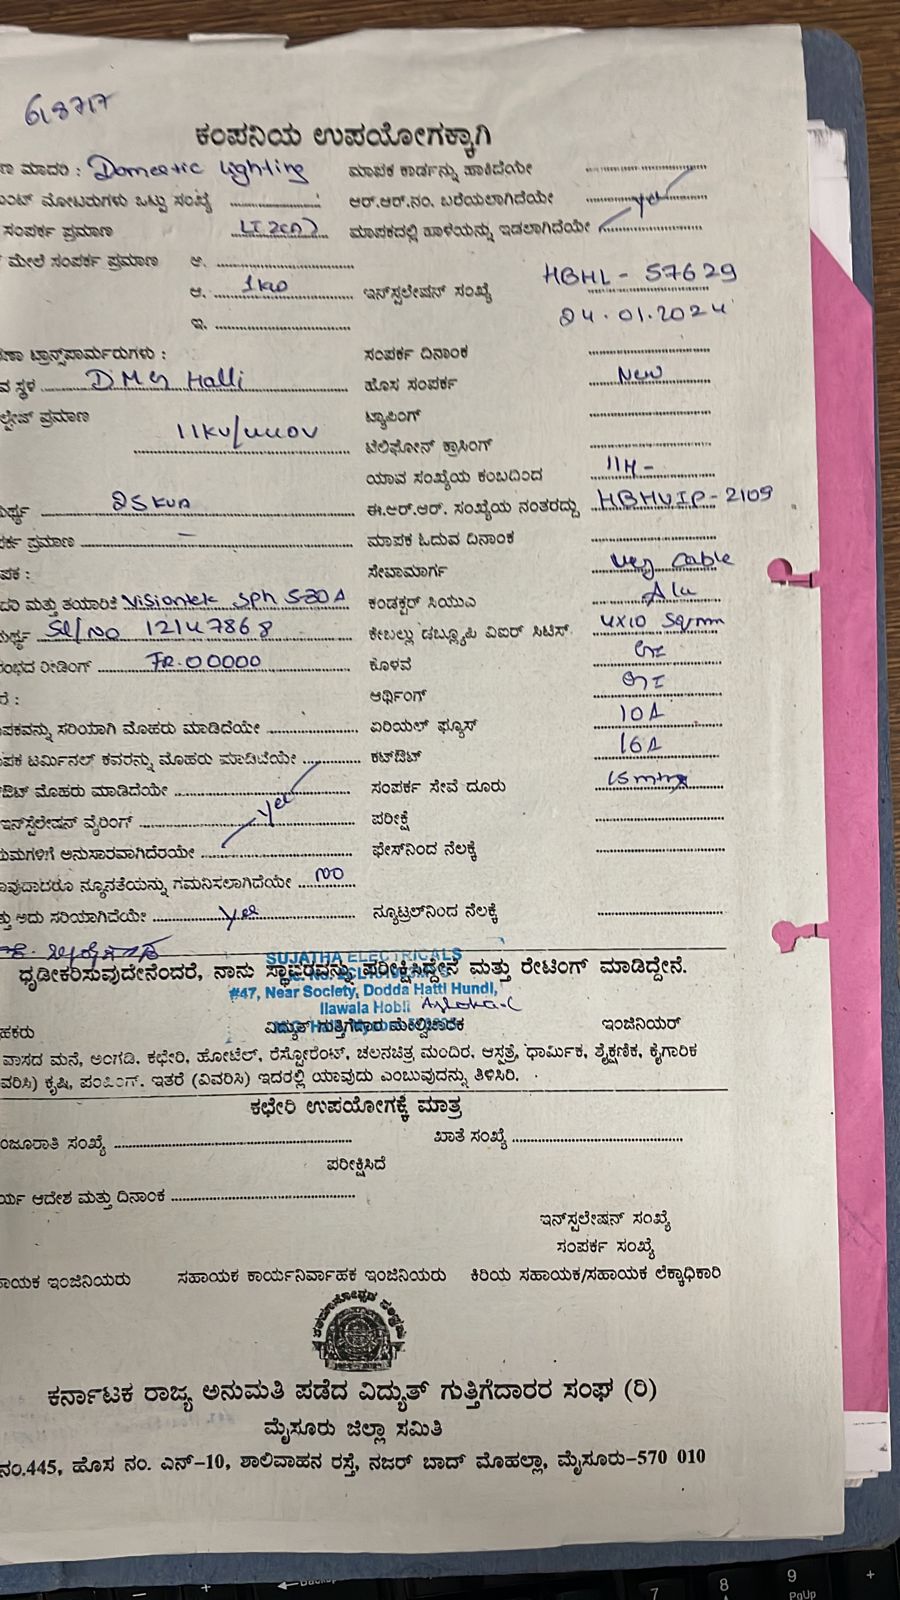 618717
ಕಂಪನಿಯ ಉಪಯೋಗಕ್ಕಾಗಿ
ಮಾದರಿ : Domestic Lighting ಮಾಪಕ ಕಾರ್ಡನ್ನು ಹಾಕಿದೆಯೇ
ಮೋಟರುಗಳು ಒಟ್ಟು ಸಂಖ್ಯೆ ಆರ್.ಆರ್.ನಂ. ಬರೆಯಲಾಗಿದೆಯೇ yes
ಸಂಪರ್ಕ ಪ್ರಮಾಣ ಮಾಪಕದಲ್ಲಿ ಹಾಳೆಯನ್ನು ಇಡಲಾಗಿದೆಯೇ
ಮೇಲೆ ಸಂಪರ್ಕ ಪ್ರಮಾಣ ಅ.
ಆ. 1kw ಇನ್‌ಸ್ಟಲೇಷನ್ ಸಂಖ್ಯೆ HBHL - 57629
ಇ. 24.01.2024
ಟ್ರಾನ್ಸ್‌ಫಾರ್ಮರುಗಳು : ಸಂಪರ್ಕ ದಿನಾಂಕ
ಸ್ಥಳ DMG Halli ಹೊಸ ಸಂಪರ್ಕ New
ಪ್ರಮಾಣ 11KV/440V ಟ್ಯಾಪಿಂಗ್
ಟೆಲಿಫೋನ್ ಕ್ರಾಸಿಂಗ್
ಯಾವ ಸಂಖ್ಯೆಯ ಕಂಬದಿಂದ 11M-
25KVA ಈ.ಆರ್.ಆರ್. ಸಂಖ್ಯೆಯ ನಂತರದ್ದು HBHVIP - 2109
ಪ್ರಮಾಣ - ಮಾಪಕ ಓದುವ ದಿನಾಂಕ
ಸೇವಾಮಾರ್ಗ Cable
ಮತ್ತು ತಯಾರಿಕೆ Visiontek Sph 5-30A ಕಂಡಕ್ಟರ್ ಸಿಯುವಿ Alu
Sl/No 12147868 ಕೇಬಲ್ಲು ಡಬ್ಲ್ಯೂಪಿ ವಿಐರ್ ಸಿಟಿಸ್ 4X10 Sqmm
ರೀಡಿಂಗ್ FR.00000 ಕೊಳವೆ GI
ಆರ್ಥಿಂಗ್ GI
ಸರಿಯಾಗಿ ಮೊಹರು ಮಾಡಿದೆಯೇ ಏರಿಯಲ್ ಫ್ಯೂಸ್ 10A
ಟರ್ಮಿನಲ್ ಕವರನ್ನು ಮೊಹರು ಮಾಡಿದೆಯೇ ಕಟ್‌ಔಟ್ 16A
ಮೊಹರು ಮಾಡಿದೆಯೇ ಸಂಪರ್ಕ ಸೇವೆ ದೂರು 15mtrs
ಇನ್‌ಸ್ಟಲೇಷನ್ ವೈರಿಂಗ್ yes ಪರೀಕ್ಷೆ
ಅನುಸಾರವಾಗಿದೆಯೇ ಫೇಸ್‌ನಿಂದ ನೆಲಕ್ಕೆ
ನ್ಯೂನತೆಯನ್ನು ಗಮನಿಸಲಾಗಿದೆಯೇ NO
ಅದು ಸರಿಯಾಗಿದೆಯೇ yes ನ್ಯೂಟ್ರಲ್‌ನಿಂದ ನೆಲಕ್ಕೆ
SUJATHA ELECTRICALS
ಧೃಡೀಕರಿಸುವುದೇನೆಂದರೆ, ನಾನು ಸ್ಥಾವರವನ್ನು ಪರೀಕ್ಷಿಸಿದ್ದೇನೆ ಮತ್ತು ರೇಟಿಂಗ್ ಮಾಡಿದ್ದೇನೆ.
#47, Near Society, Dodda Hatti Hundi,
Ilawala Hobli Ashoka.C
ವಿದ್ಯುತ್ ಗುತ್ತಿಗೆದಾರ ಮೇಲ್ವಿಚಾರಕ ಇಂಜಿನಿಯರ್
ವಾಸದ ಮನೆ, ಅಂಗಡಿ, ಕಛೇರಿ, ಹೋಟೆಲ್, ರೆಸ್ಟೋರೆಂಟ್, ಚಲನಚಿತ್ರ ಮಂದಿರ, ಆಸ್ಪತ್ರೆ, ಧಾರ್ಮಿಕ, ಶೈಕ್ಷಣಿಕ, ಕೈಗಾರಿಕ
ಕೃಷಿ, ಪಂಪಿಂಗ್. ಇತರೆ (ವಿವರಿಸಿ) ಇದರಲ್ಲಿ ಯಾವುದು ಎಂಬುವುದನ್ನು ತಿಳಿಸಿರಿ.
ಕಛೇರಿ ಉಪಯೋಗಕ್ಕೆ ಮಾತ್ರ
ಸಂಖ್ಯೆ ಖಾತೆ ಸಂಖ್ಯೆ
ಪರೀಕ್ಷಿಸಿದೆ
ಆದೇಶ ಮತ್ತು ದಿನಾಂಕ
ಇನ್‌ಸ್ಟಲೇಷನ್ ಸಂಖ್ಯೆ
ಸಂಪರ್ಕ ಸಂಖ್ಯೆ
ಇಂಜಿನಿಯರು ಸಹಾಯಕ ಕಾರ್ಯನಿರ್ವಾಹಕ ಇಂಜಿನಿಯರು ಕಿರಿಯ ಸಹಾಯಕ/ಸಹಾಯಕ ಲೆಕ್ಕಾಧಿಕಾರಿ
ಕರ್ನಾಟಕ ರಾಜ್ಯ ಅನುಮತಿ ಪಡೆದ ವಿದ್ಯುತ್ ಗುತ್ತಿಗೆದಾರರ ಸಂಘ (ರಿ)
ಮೈಸೂರು ಜಿಲ್ಲಾ ಸಮಿತಿ
ನಂ.445, ಹೊಸ ನಂ. ಎನ್-10, ಶಾಲಿವಾಹನ ರಸ್ತೆ, ನಜರ್ ಬಾದ್ ಮೊಹಲ್ಲಾ, ಮೈಸೂರು-570 010
7 8 9 PgUp